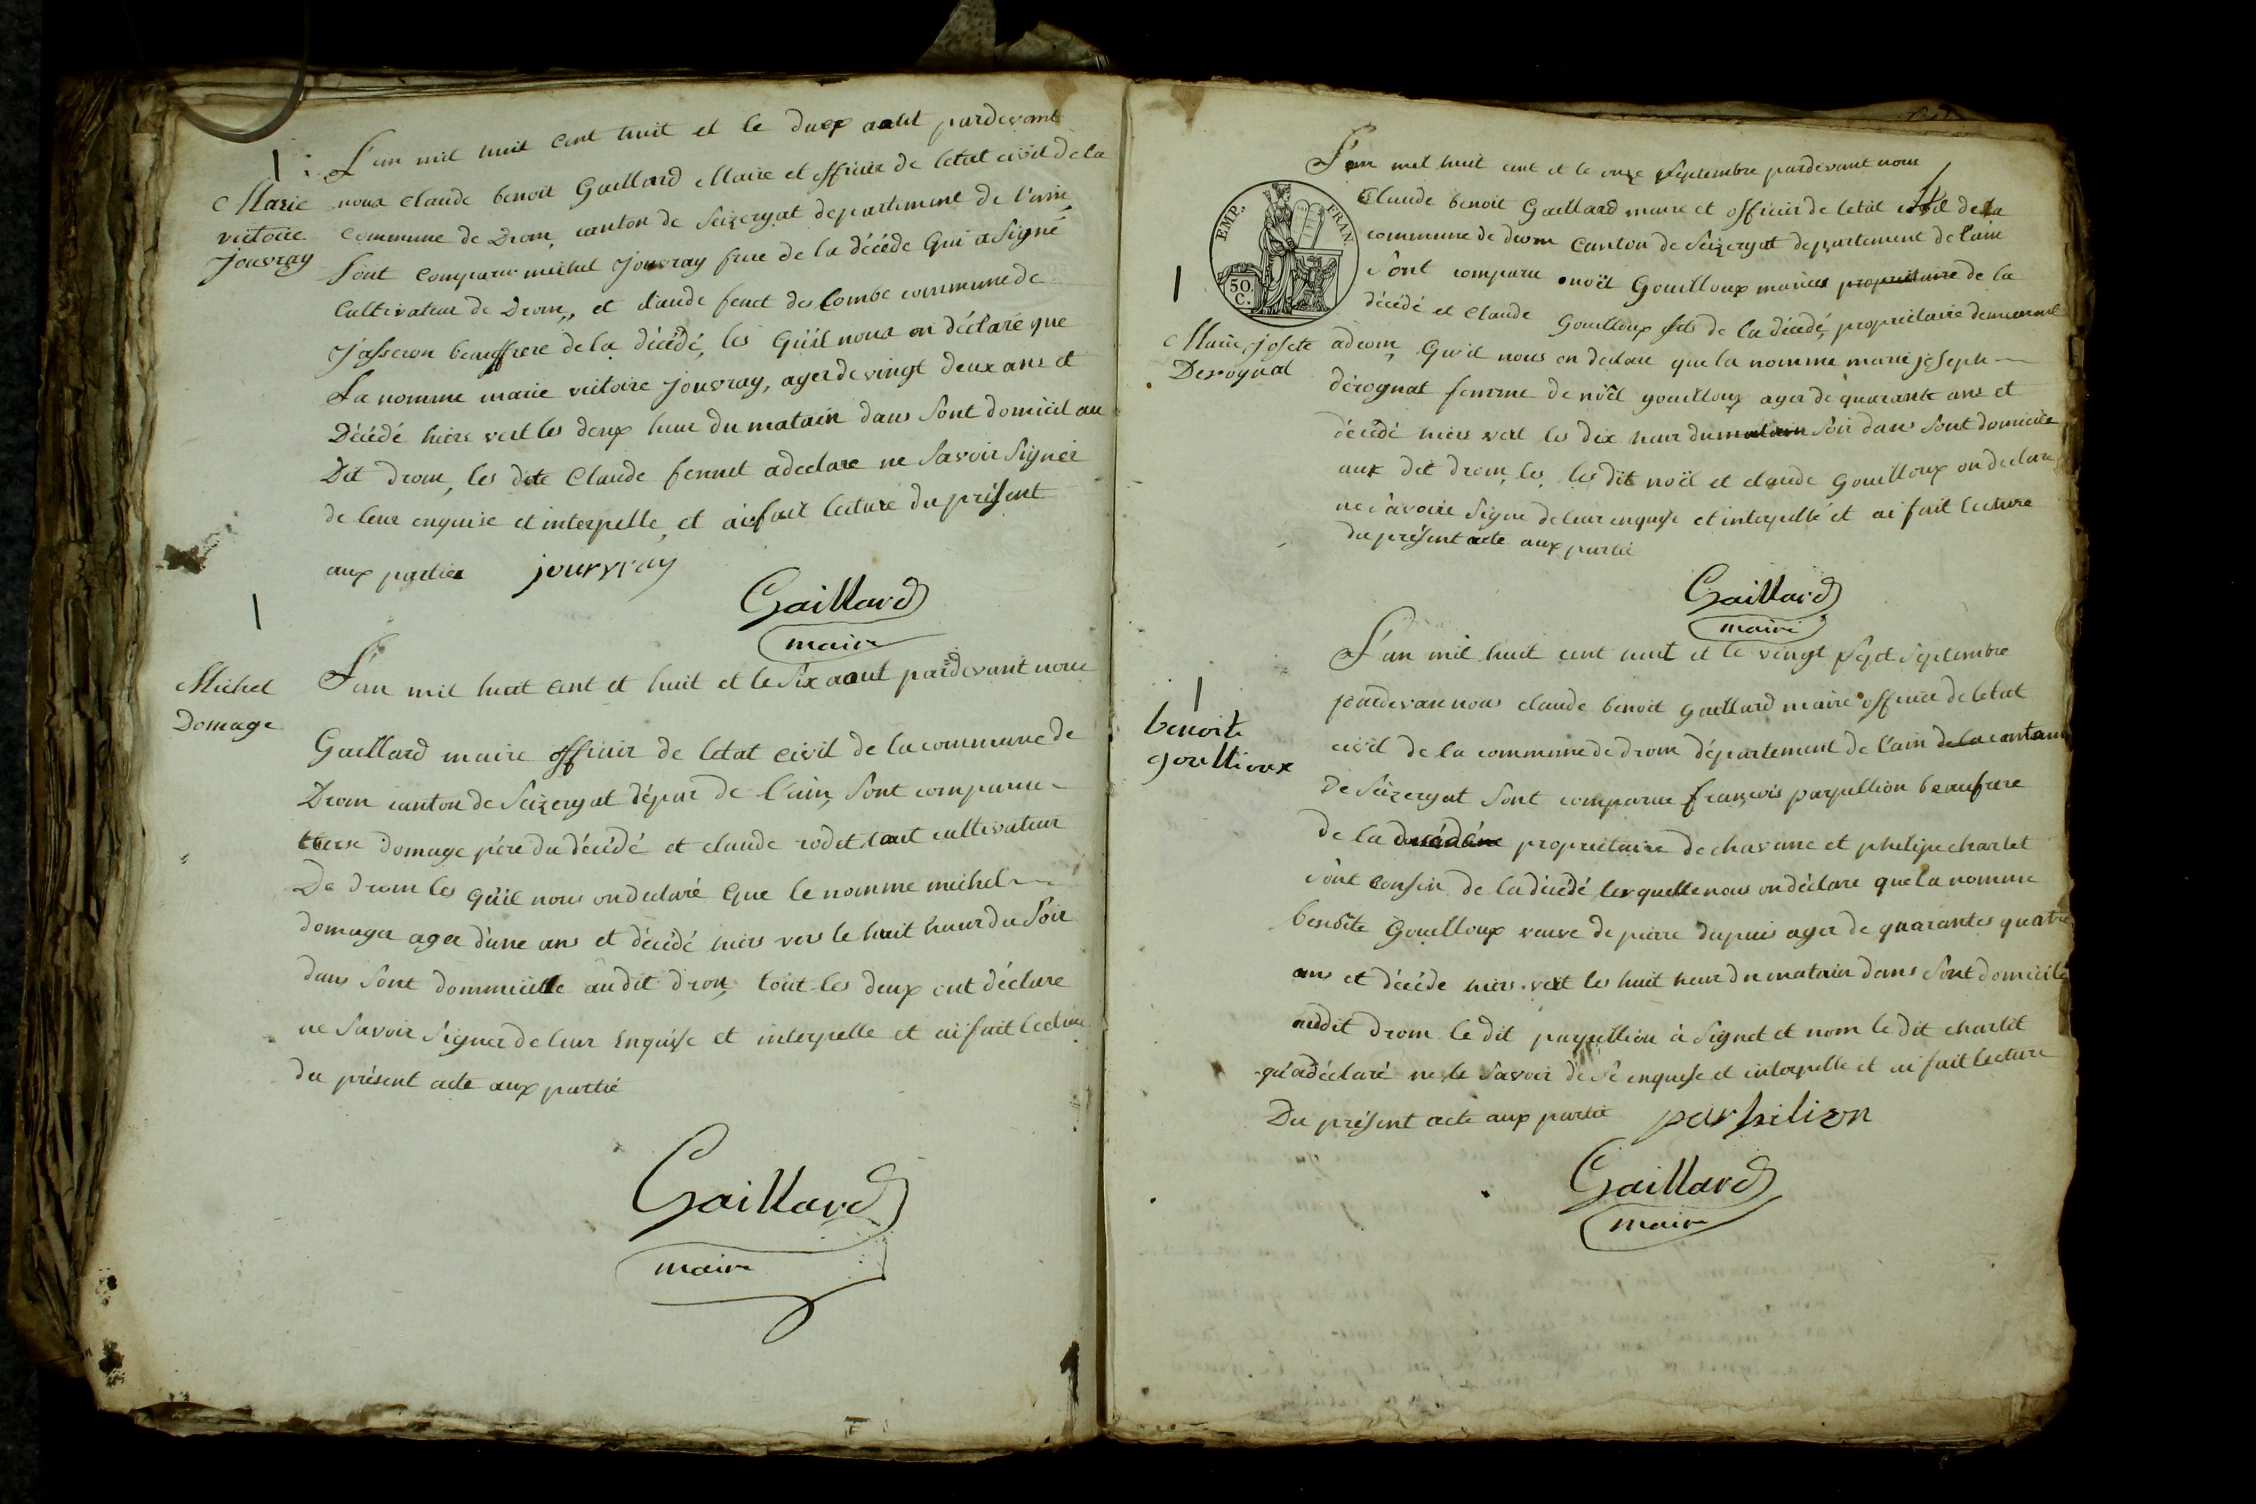 Marie
victoire
Jouvray
L'an mil huit cent huit et le deux aout pardevant
nous claude benoit Gaillard Maire et officier de letat civil de la
commune de Drom, canton de Seizeryat departement de l'ain
sont comparu michel Jouvray frere de la décéde Qui a Signé
Cultivateur de Drom, et claude fenet des Combe commune de
Jasseron beauffrere de la décédé, les Quil nous on déclaré que
La nomme marie victoire jouvray, ager de vingt deux ans et
Décédé hiere vert les deux heur du matain dans sont domicil au
Dit drom, les dite Claude fennet a declare ne Savoir Signer
de leur enquise et interpelle, et ai fait lecture du présent
aux parties jouvray
Gaillard
maire
Michel
Domage
L'an mil huit cent et huit et le Six aout pardevant nous
Gaillard maire officier de letat civil de la commune de
Drom canton de Seizeryat dépar de l'ain, Sont comparue
domage père du décédé et claude rodet tout cultivateur
De drom les quil nous on declaré que le nomme michel
domager ager d'une ans et décédé hiers vers le huit heur du Soir
dans Sont dommicille audit drom, tout les deux ont déclare
ne Savoir Signer de leur Enquise et interpelle et ai fait lecture
du présent acte aux partié
Gaillard
maire
EMP. FRAN.
50.
C.
Marie, josete
Derognat
L'an mil huit cent et le onze Septembre pardevant nous
Claude benoit Gaillard maire et officier de letat civil de la
commune de drom Canton de Seizeryat departement de l'ain
Sont comparu noël Gouilloux maries propriétaire de la
décédé et Claude Gouilloux fils de la décédé, propriétaire demeurant
a drom, Qu'il nous on declare que la nomme marie joseph
dérognat femme de nöel gouilloux ager de quarante ans et
décédé hiers vert les dix heur du matain Soir dans Sont domicile
aux dit drom, les, les dit noël et claude Gouilloux on declare
ne sâvoire Signe de leur enquise et interpellé et ai fait lecture
du présent acte aux partié
Gaillard
maire
benoite
goullioux
L'an mil huit cent huit et le vingt Sept Septembre
pardevant nous claude benoit Gaillard maire officier de letat
civil de la commune de drom département de l'ain de la contan
de Seizeryat Sont comparue françois papillion beaufrere
de la propriétaire de chavanne et philipe charlet
sont cousin de la décédé lesquelle nous on déclare que la nomme
benoite Gouilloux veuve de pierre dupuis ager de quarantes quatre
ans et décéde hiers vert les huit heur du matain dans Sont domicile
audit drom le dit papillion à Signet et nom le dit charlet
qu'a déclaré ne le Savoir de Sé enquise et interpelle et ai fait lecture
Du présent acte aux partie parpilion
Gaillard
maire